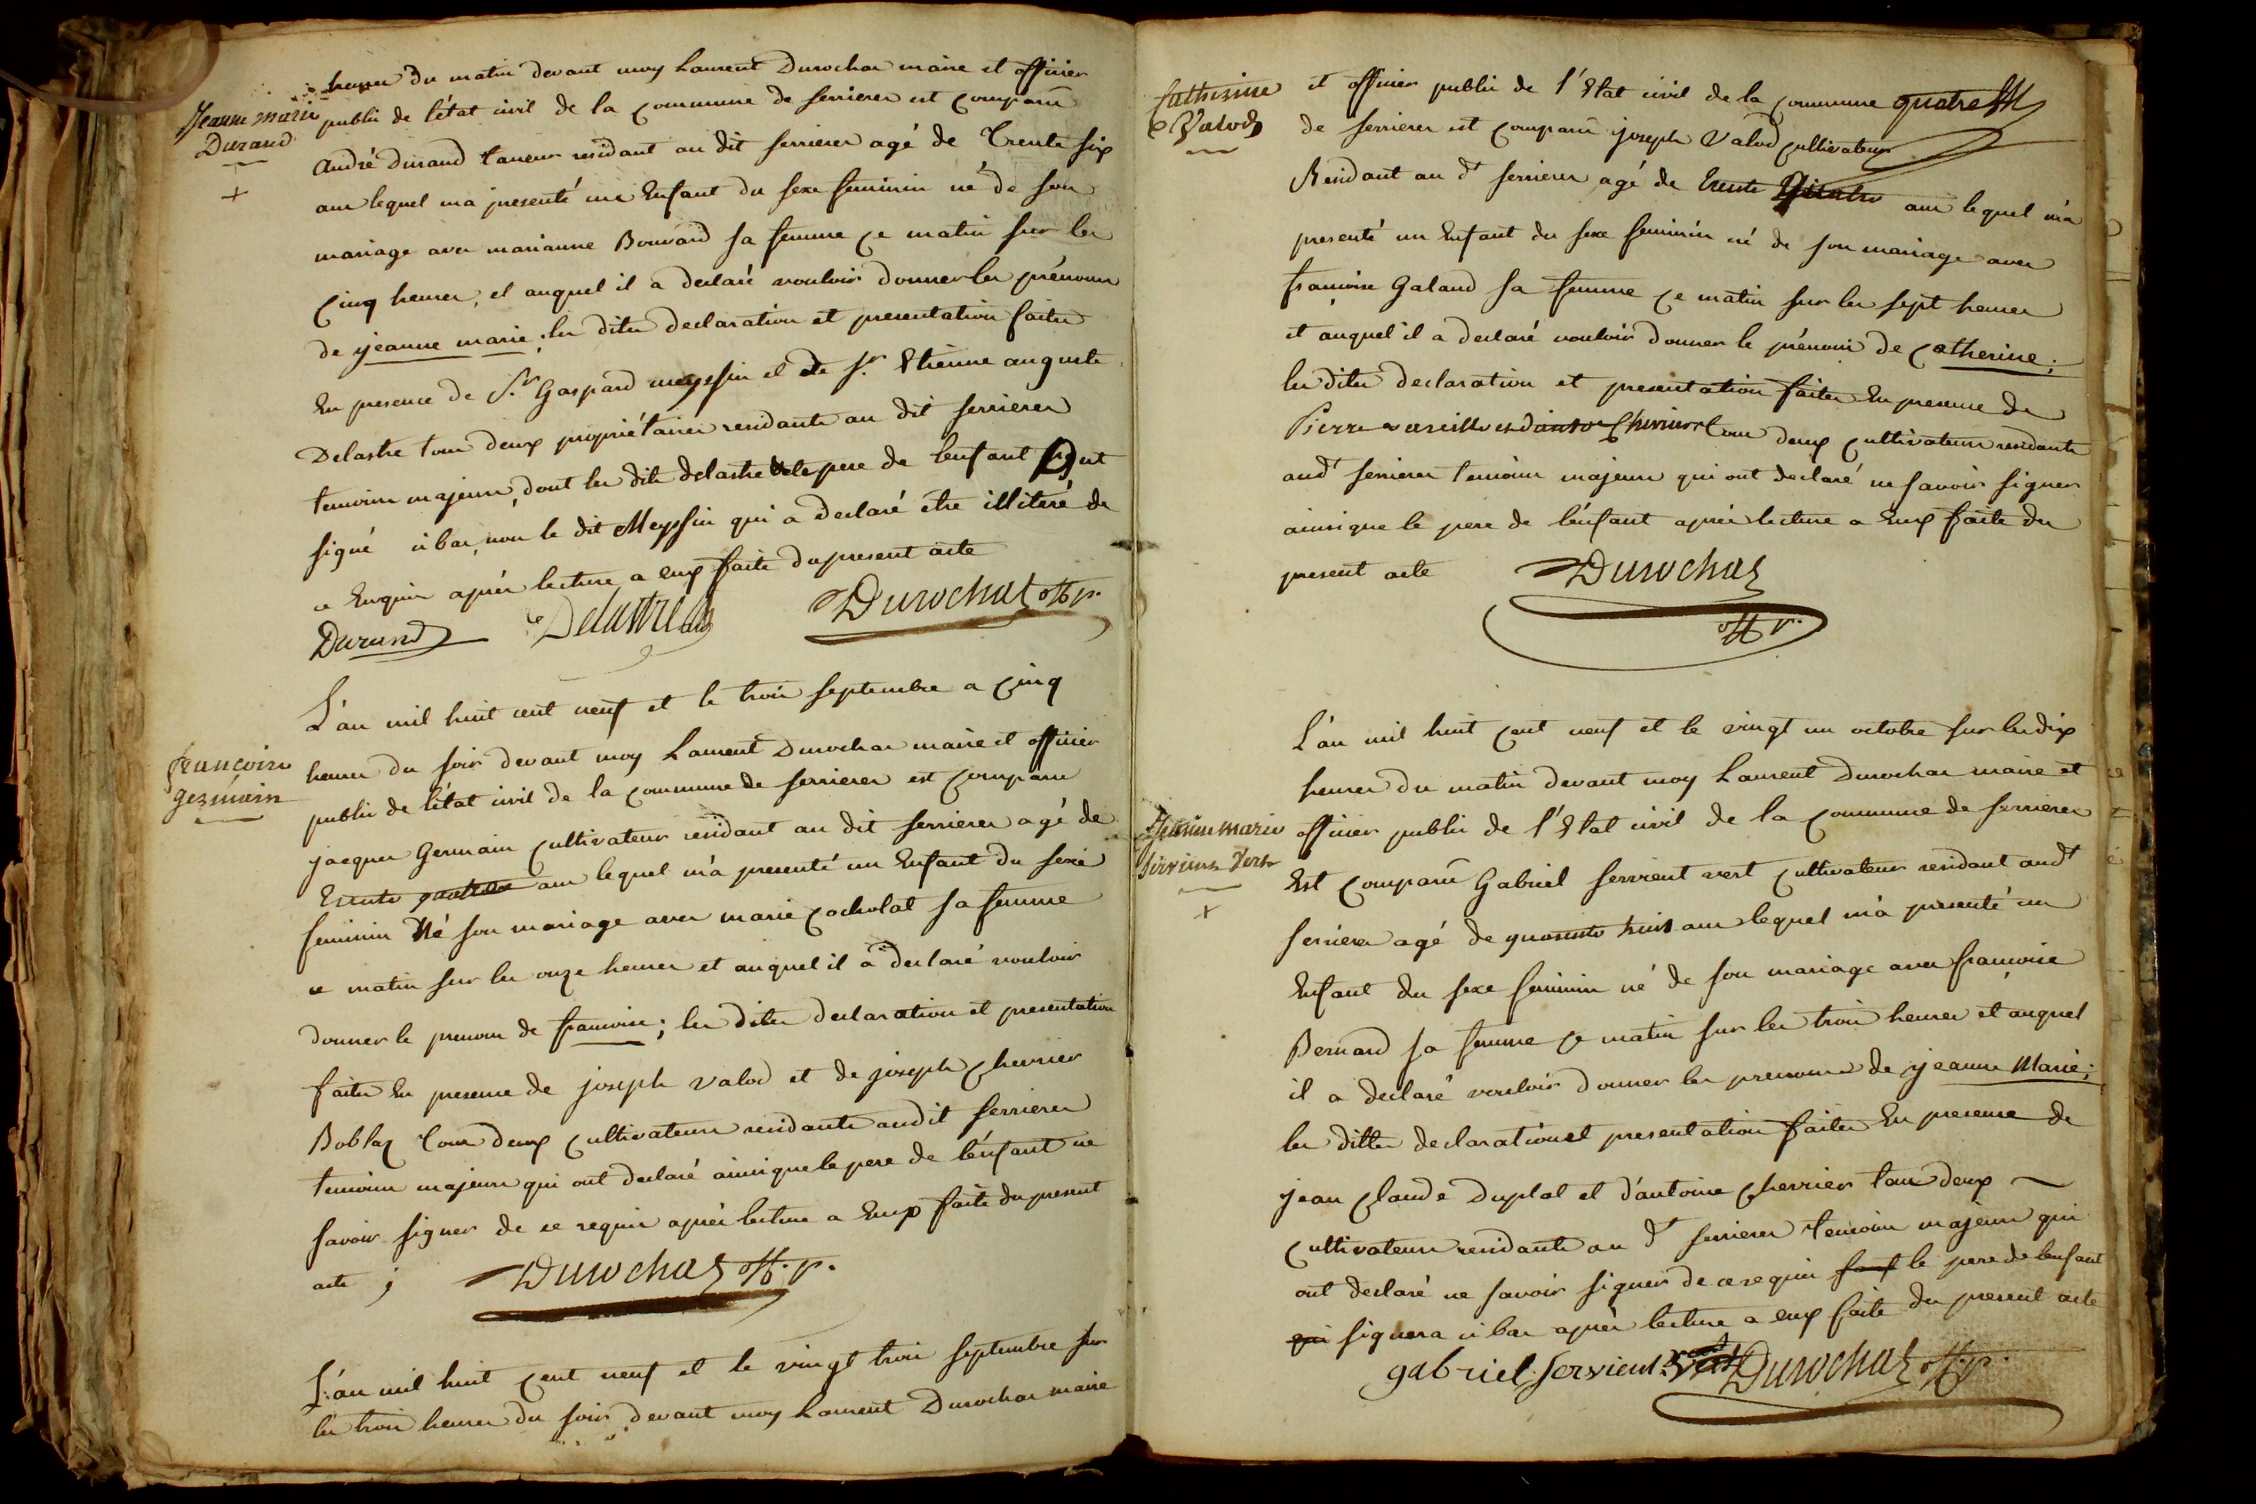 heures du matin devant moy Laurent Durochas maire et officier
Jeanne marie
Durand
public de l'état civil de la commune de serrieres est comparû
andré durand taneur residant au dit serrieres agé de Trente six
ans lequel m'a presenté un Enfant du sexe feminin né de son
mariage avec marianne Bouvard sa femme ce matin sur les
cinq heures, et auquel il a declaré vouloir donner les prénoms
de jeanne marie; les dites declaration et presentation faites
En presence de Sr. Gaspard meyssin et de Sr. Etienne auguste
Delastre tous deux propriétaires residants au dit serrieres
temoins majeurs, dont les dits delastre et le pere de l'enfant ont
signé ci bas, non le dit Meyssin qui a declaré etre illiteré de
ce Enquis après lecture a eux faite du present acte
Durand Delastre Durochas off. p.
L'an mil huit cent neuf et le trois septembre a cinq
francoise
germain
heures du soir devant moy Laurent Durochas maire et officier
public de l'état civil de la commune de serrieres est comparu
jacques Germain cultivateur residant au dit serrieres agé de
Trente quatre ans lequel m'a presenté un Enfant du sexe
feminin Né son mariage avec marie cocholat sa femme
ce matin sur les onze heures et auquel il a declaré vouloir
donner le prenom de francoise; les dites declaration et presentation
faites En presence de joseph valod et de joseph chevrier
Boblaz tous deux cultivateurs residants audit serrieres
temoins majeurs qui ont declaré ainsi que le pere de l'énfant ne
savoir signer de ce requis après lecture a Eux faite du present
acte ;
Durochas off. p.
L'an mil huit cent neuf et le vingt trois septembre sur
les trois heures du soir devant moy Laurent Durochas maire
Catherine
Valod
et officier public de l'Etat civil de la commune quatre
de serrieres est comparû joseph Valod cultivateur
Residant au dt serrieres agé de trente Quatre ans lequel m'a
presenté un Enfant du sexe feminin né de son mariage avec
francoise Galand sa femme ce matin sur les sept heures
et auquel il a declaré vouloir donner le prénom de Catherine;
les dites declaration et presentation faites En presence de
Pierre et d'antoine Chevrier tous deux cultivateurs residants
audt serrieres temoins majeurs qui ont declaré ne savoir signer
ainsi que le pere de l'énfant après lecture a Eux faite du
present acte
Durochas
off p.
L'an mil huit cent neuf et le vingt un octobre sur les dix
heures du matin devant moy Laurent Durochas maire et
Jeanne marie
servient vert
officier public de l'Etat civil de la commune de serrieres
Est comparû Gabriel servient vert cultivateur residant audt
serrieres agé de quarante huit ans lequel m'a presenté un
Enfant du sexe feminin né de son mariage avec francoise
Bernard sa femme ce matin sur les trois heures et auquel
il a declaré vouloir donner les prenoms de jeanne Marie;
les dittes declaration et presentation faites En presence de
jean Claude Duplat et d'antoine chevrier tous deux
cultivateurs residants au dt serrieres temoins majeurs qui
ont declaré ne savoir signer de ce requis sauf le pere de l'enfant
qui signera ci bas après lecture a eux faite du present acte
gabriel servient vert Durochas off. p.